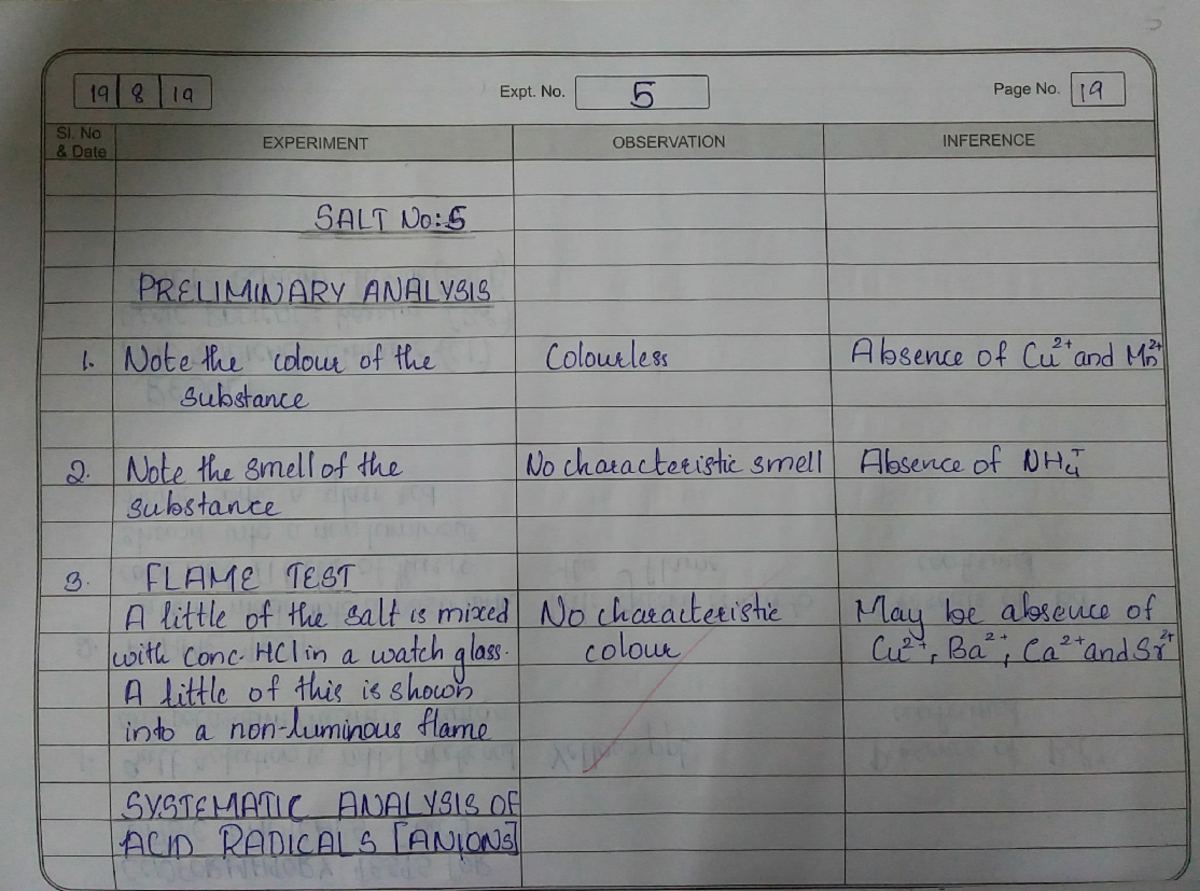 19 8 19 Expt. No. 5 Page No. 19
Sl. No & Date EXPERIMENT OBSERVATION INFERENCE
SALT No:5
PRELIMINARY ANALYSIS
1. Note the colour of the Colourless Absence of Cu²⁺ and Mn²⁺
substance
2. Note the smell of the No characteristic smell Absence of NH₄⁺
substance
3. FLAME TEST
A little of the salt is mixed No characteristic May be absence of
with conc. HCl in a watch glass. colour Cu²⁺, Ba²⁺, Ca²⁺ and Sr²⁺
A little of this is shown
into a non-luminous flame
SYSTEMATIC ANALYSIS OF
ACID RADICALS [ANIONS]